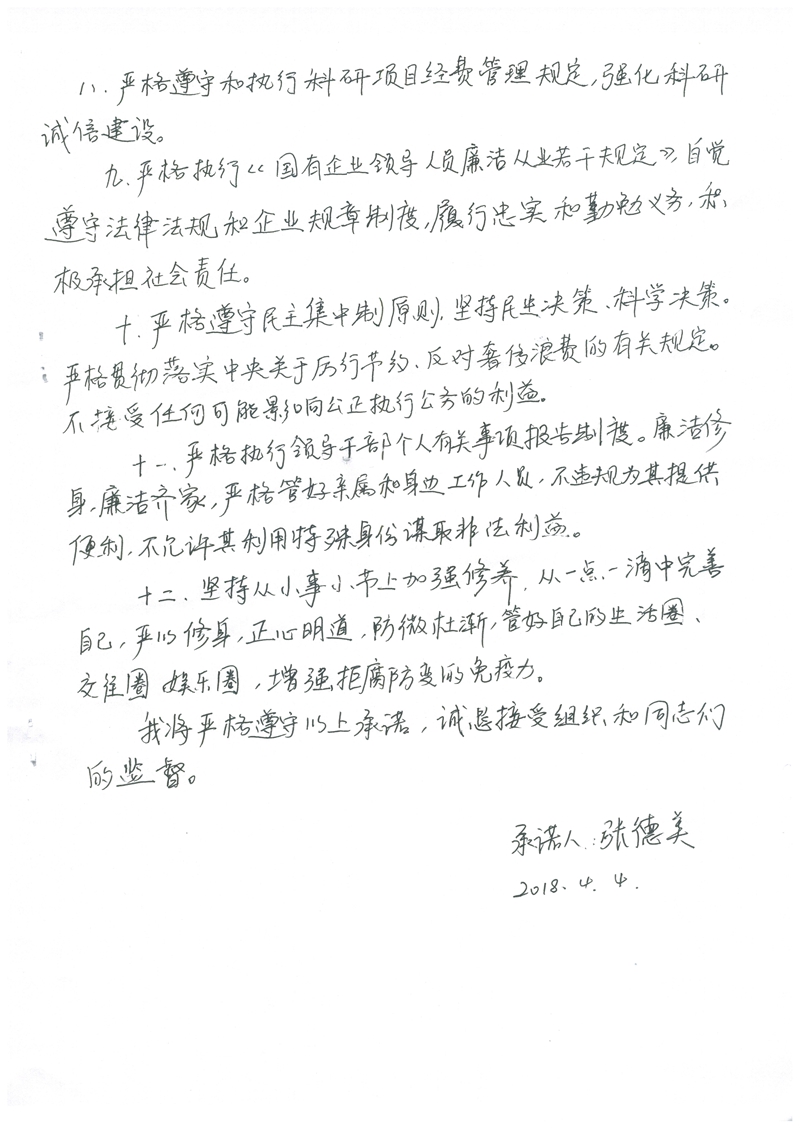 八、严格遵守和执行科研项目经费管理规定,强化科研
诚信建设。
九、严格执行《国有企业领导人员廉洁从业若干规定》,自觉
遵守法律法规和企业规章制度,履行忠实和勤勉义务,积
极承担社会责任。
十、严格遵守民主集中制原则,坚持民主决策、科学决策。
严格贯彻落实中央关于厉行节约、反对奢侈浪费的有关规定。
不接受任何可能影响公正执行公务的利益。
十一、严格执行领导干部个人有关事项报告制度。廉洁修
身,廉洁齐家,严格管好亲属和身边工作人员,不违规为其提供
便利,不允许其利用特殊身份谋取非法利益。
十二、坚持从小事小节上加强修养,从一点一滴中完善
自己,严以修身,正心明道,防微杜渐,管好自己的生活圈、
交往圈 娱乐圈,增强拒腐防变的免疫力。
我将严格遵守以上承诺,诚恳接受组织和同志们
的监督。
承诺人:张德美
2018.4.4.